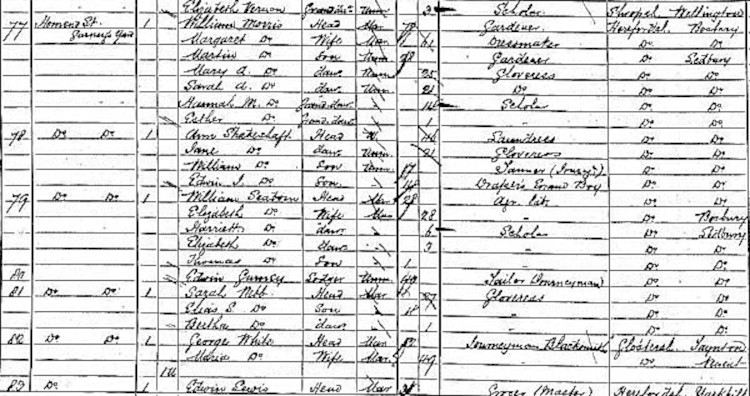 Elizabeth Vernon Scholar Shropsh. Wellington
77 Homend St. 1 William Morris Head Mar 70 Gardener Herefordsh. Bosbury
Margaret Do Wife Mar 61 Dressmaker Do Do
Martin Do Son Unm 28 Gardener Do Ledbury
Mary A. Do daur Unm 25 Gloveress Do Do
Sarah A. Do daur Unm 21 Do Do Do
Hannah M. Do Grand daur Scholar Do Do
Esther Do Grand daur 1 Do Do
78 Do Do 1 Ann Shakeshaft Head W 46 Laundress Do Do
Jane Do daur Unm 21 Gloveress Do Do
William Do Son Unm 17 Tanner Do Do
Edwin J. Do Son Draper's Errand Boy Do Do
79 Do Do 1 William Seaborn Head Mar 28 Agr. lab. Do Do
Elizabeth Do Wife Mar 28 Do Bosbury
Harriett Do daur 6 Scholar Do Ledbury
Elizabeth Do daur 3 Do Do
Thomas Do Son 1 Do Do
80 Edwin Gurney Lodger Unm 40 Tailor (Journeyman) Do Do
81 Do Do 1 Sarah Webb Head Mar 27 Gloveress Do Do
Elias S. Do Son Do Do
Bertha Do daur 1 Do Do
82 Do Do 1 George White Head Mar 52 Journeyman Blacksmith Glostersh. Taynton
Maria Do Wife Mar 49 Do Newent
83 Do 1 Edwin Lewis Head Mar Grocer (Master) Herefordsh. Yarkhill